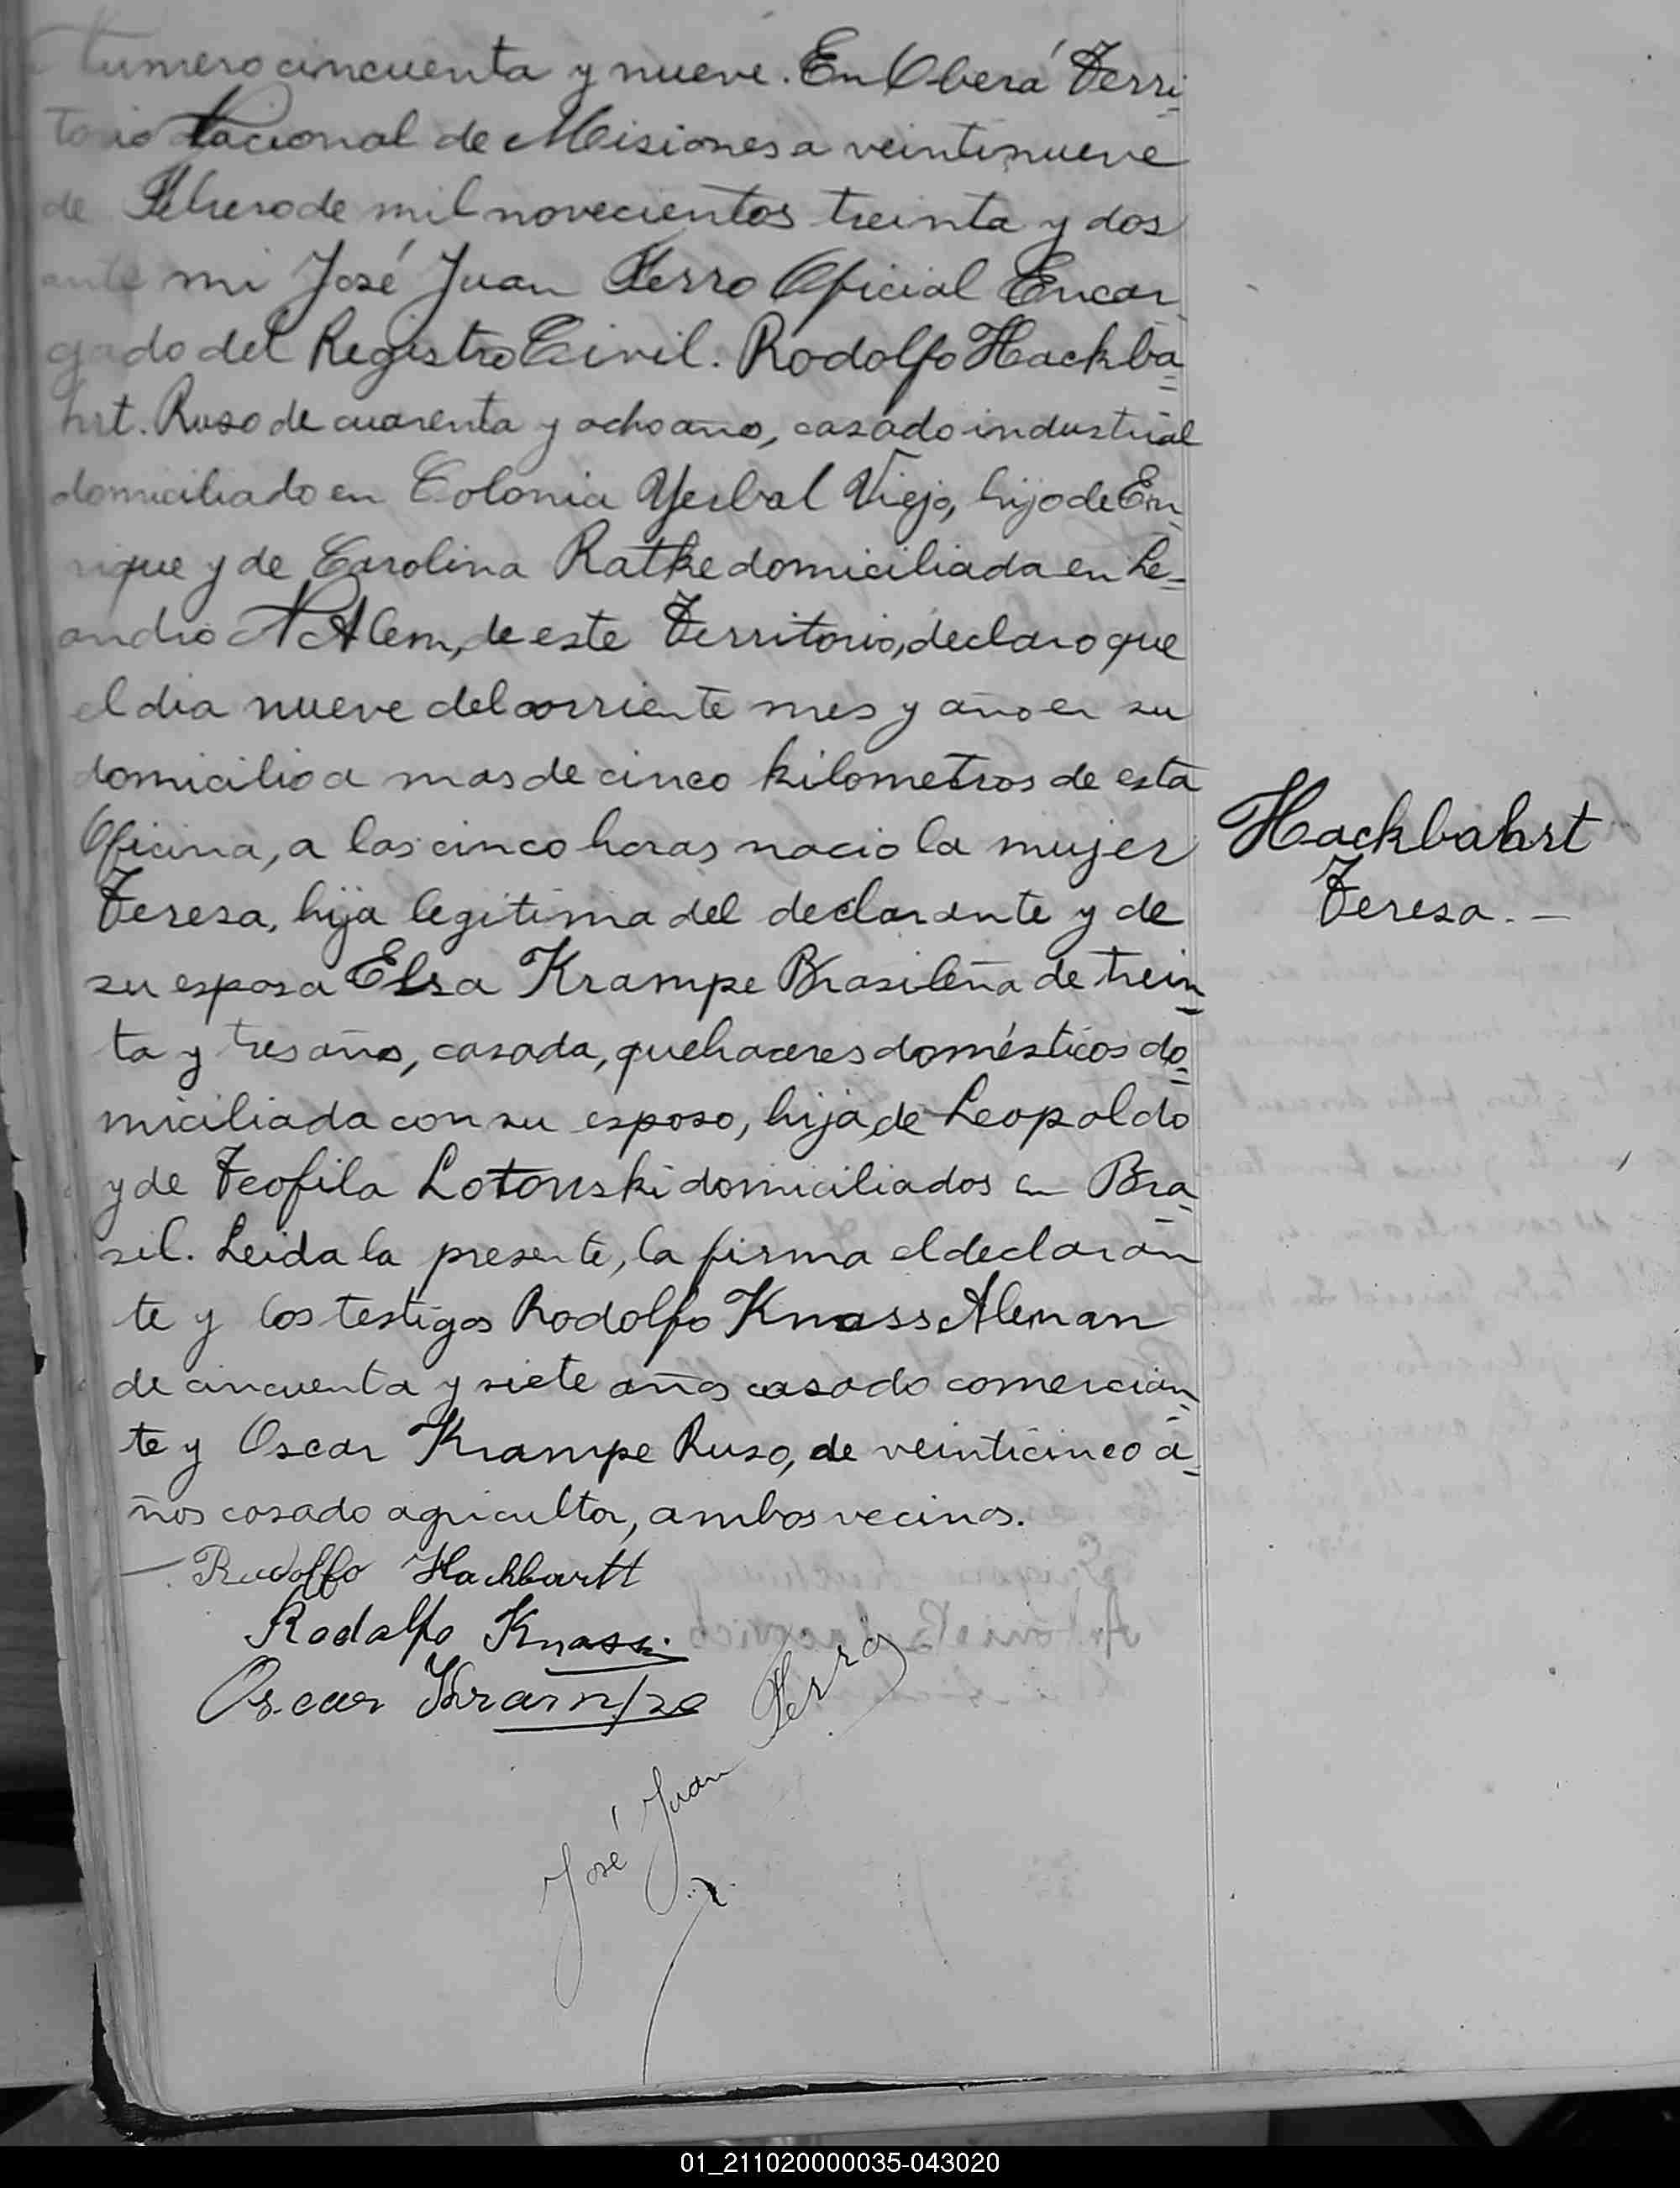 Numero cincuenta y nueve. En Oberá Terri-
torio Nacional de Misiones a veintinueve
de Febrero de mil novecientos treinta y dos
ante mi José Juan Ferro Oficial Encar-
gado del Registro Civil. Rodolfo Hackba=
hrt. Ruso de cuarenta y ocho años, casado industrial
domiciliado en Colonia Yerbal Viejo, hijo de En-
rique y de Carolina Ratke domiciliada en Le=
andro N Alem, de este Territorio, declaro que
el dia nueve del corriente mes y año en su
domicilio a mas de cinco kilometros de esta
Oficina, a las cinco horas nacio la mujer
Teresa, hija legitima del declarante y de
su esposa Elsa Krampe Brasileña de trein=
ta y tres años, casada, quehaceres domésticos do=
miciliada con su esposo, hija de Leopoldo
y de Teofila Lotonski domiciliados en Bra=
sil. Leida la presente, la firma el declaran
te y los testigos Rodolfo Knass Aleman
de cincuenta y siete años casado comercian=
te y Oscar Krampe Ruso, de veinticinco a=
ños casado agricultor, ambos vecinos.
Hackbahrt
Teresa. —
Rudolfo Hackbartt
Rodolfo Knass.
Oscar Krampe
José Juan Ferro
01_211020000035-043020